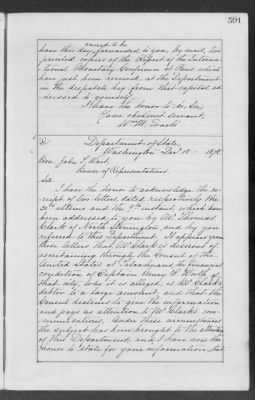 591
caused to be
have this day forwarded to you, by mail, two
printed copies of the Report of the Interna-
tional Monetary Conference at Paris which
have just been received, at the Department
in the dispatch bag from that capital ad-
dressed to yourself.
I have the honor to be, Sir,
Your obedient servant,
Wm. M. Evarts
Department of State,
Washington Decr 18 - 1878
Hon. John T. Wait,
House of Representatives.
Sir
I have the honor to acknowledge the re-
ceipt of two letters dated respectively the
ultimo and the instant, which have
been addressed to you by Mr Thomas
Clark of North Stonington and by you
referred to this Department. It appears from
these letters that Mr Clark is desirous of
ascertaining through the Consul of the
United States at the financial
condition of Captain Henry S. Worth of
that city, who it is alleged, is Mr Clark's
debtor to a large amount, and that the
Consul declines to give the information
and pays no attention to Mr Clark's com-
munications. Under these circumstances
the subject has been brought to the attention
of this Department and I have now the
honor to state for your information that